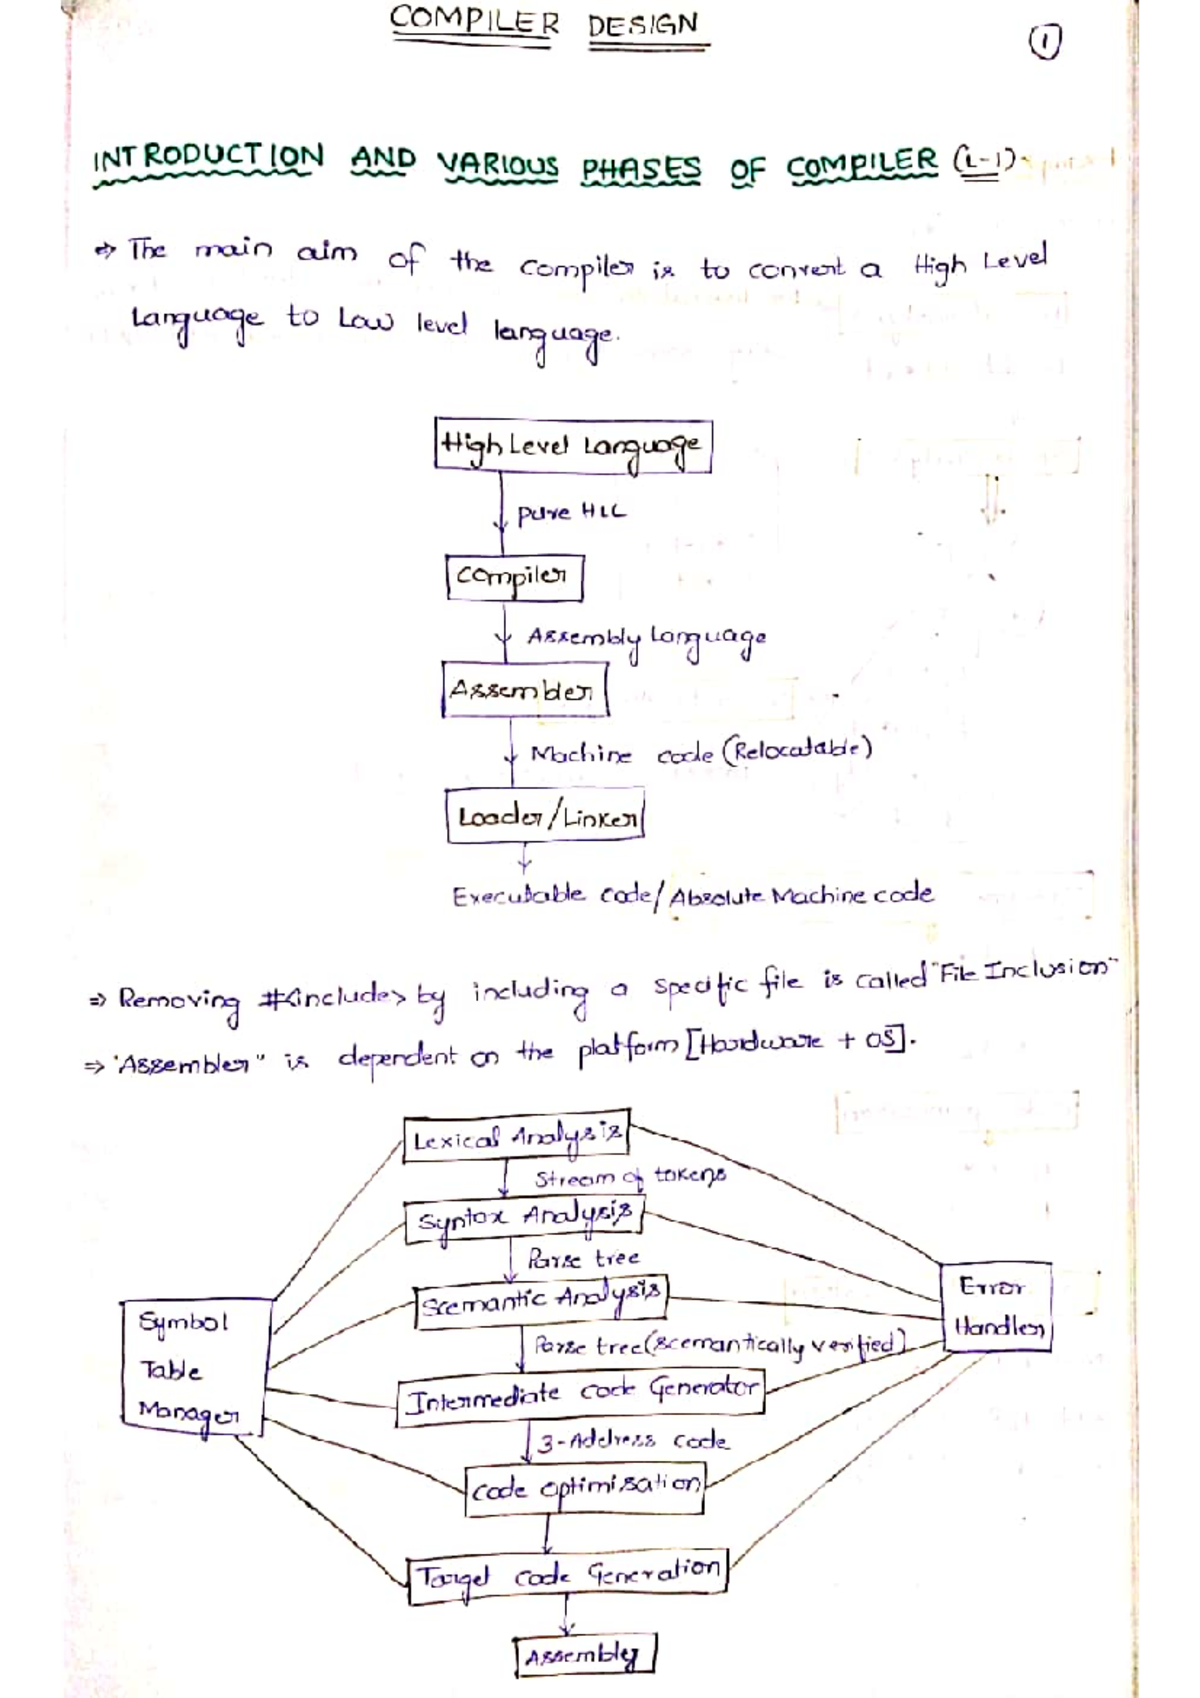 COMPILER DESIGN
1
INTRODUCTION AND VARIOUS PHASES OF COMPILER (L-1)
⇒ The main aim of the compiler is to convert a High Level
Language to Low level language.
High Level Language
pure HLL
Compiler
Assembly Language
Assembler
Machine code (Relocatable)
Loader/Linker
Executable code/Absolute Machine code
⇒ Removing #<include> by including a specific file is called "File Inclusion"
⇒ "Assembler" is dependent on the platform [Hardware + OS].
Lexical Analysis
Stream of tokens
Syntax Analysis
Parse tree
Scemantic Analysis
Parse tree (scemantically verified)
Intermediate code Generator
3-Address code
Code optimisation
Target code Generation
Assembly
Symbol
Table
Manager
Error
Handler